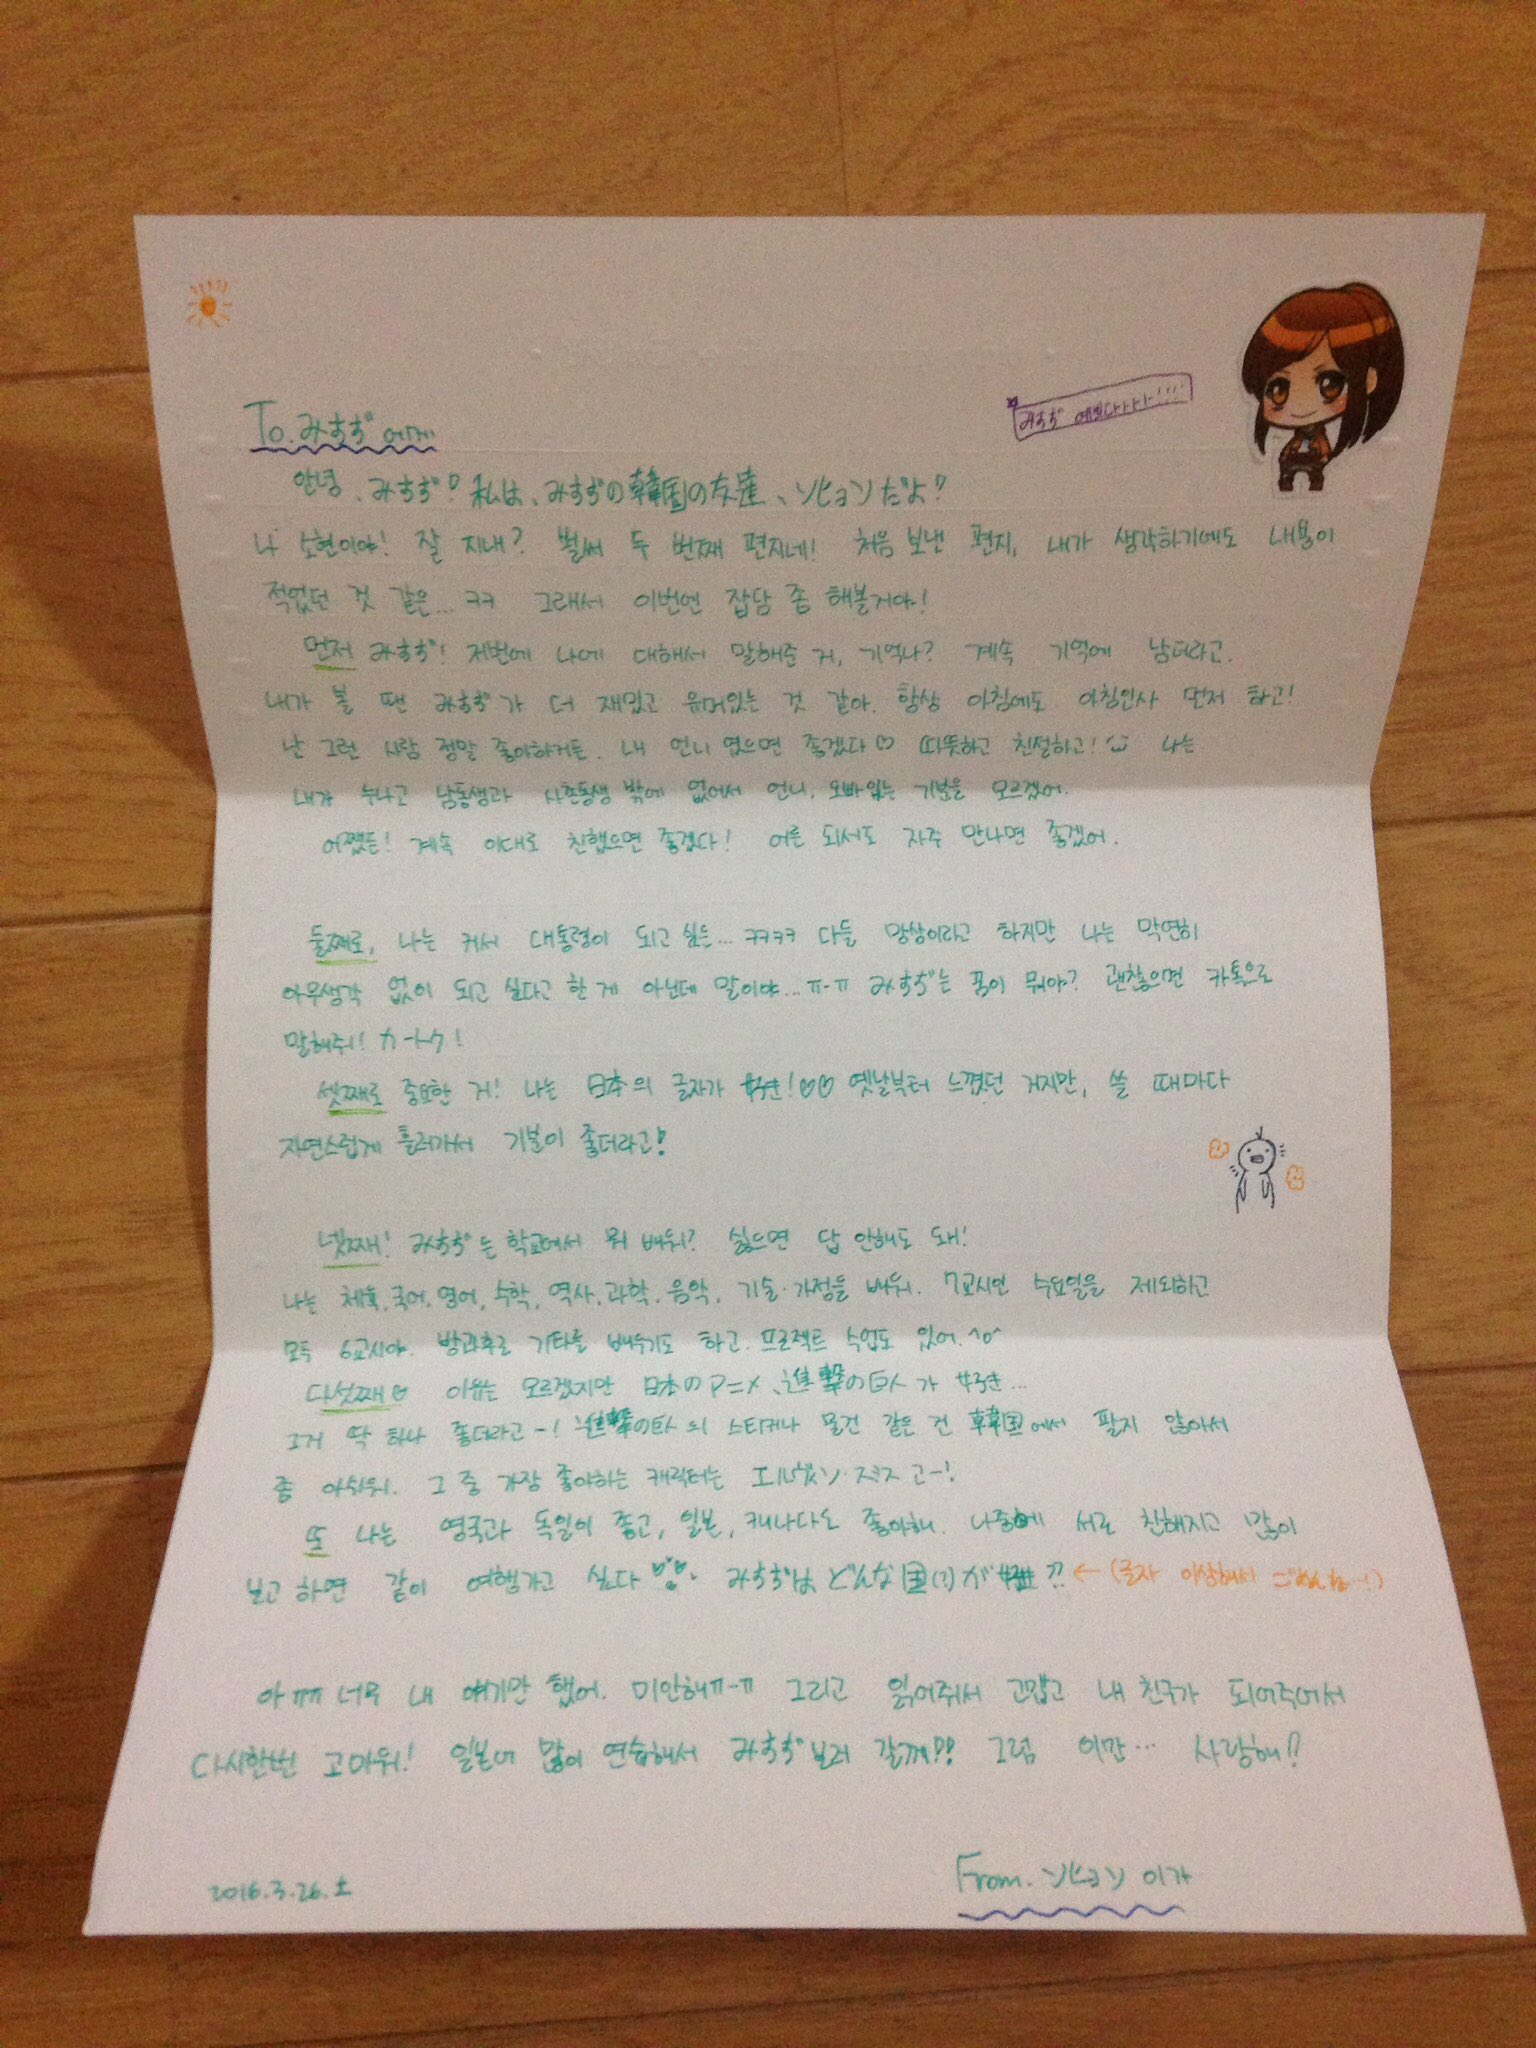 To. みすず에게
みすず 예쁘다아아아!!!!
안녕, みすず! 私は、みすずの韓国の友達、ソヒョンだよ!
나 소현이야! 잘 지내? 벌써 두 번째 편지네! 처음 보낸 편지, 내가 생각하기에도 내용이
적었던 것 같은... ㅋㅋ 그래서 이번엔 잡담 좀 해볼거야!
먼저 みすず! 저번에 나에 대해서 말해준 거, 기억나? 계속 기억에 남더라고.
내가 볼 땐 みすず가 더 재밌고 유머있는 것 같아. 항상 아침에도 아침인사 먼저 하고!
난 그런 사람 정말 좋아하거든. 내 언니 였으면 좋겠다♡ 따뜻하고 친절하고! 나는
내가 누나고 남동생과 사촌동생 밖에 없어서 언니, 오빠있는 기분을 모르겠어.
어쨌든! 계속 이대로 친했으면 좋겠다! 어른 되서도 자주 만나면 좋겠어.
둘째로, 나는 커서 대통령이 되고 싶은... ㅋㅋㅋㅋ 다들 망상이라고 하지만 나는 막연히
아무생각 없이 되고 싶다고 한 게 아닌데 말이야...ㅠ-ㅠ みすず는 꿈이 뭐야? 괜찮으면 카톡으로
말해줘!
셋째로 중요한 거! 나는 日本의 글자가 好き!♡♡ 옛날부터 느꼈던 거지만, 쓸 때마다
자연스럽게 흘러가서 기분이 좋더라고!
넷째! みすず는 학교에서 뭐 배워? 싫으면 답 안해도 돼!
나는 체육, 국어, 영어, 수학, 역사, 과학, 음악, 기술·가정을 배워. 7교시인 수요일을 제외하고
모두 6교시야. 방과후로 기타를 배우기도 하고. 프로젝트 수업도 있어.^o^
다섯째♡ 이유는 모르겠지만 日本のアニメ、進撃の巨人가 好き...
그거 딱 하나 좋더라고-! 進撃の巨人의 스티커나 물건 같은 건 韓国에서 팔지 않아서
좀 아쉬워. 그 중 가장 좋아하는 캐릭터는 エルヴィン·
또 나는 영국과 독일이 좋고, 일본, 캐나다도 좋아해. 나중에 서로 친해지고 많이
보고 하면 같이 여행가고 싶다 みすずは どんな国(?)が 好き?? ← (글자 이상해서 ごめんね…!)
아 ㅠㅠ 너무 내 얘기만 했어. 미안해ㅠ-ㅠ 그리고 읽어줘서 고맙고 내 친구가 되어주어서
다시한번 고마워! 일본어 많이 연습해서 みすず 보러 갈께!! 그럼 이만… 사랑해!?
From. ソヒョン 이가
2016.3.26.土